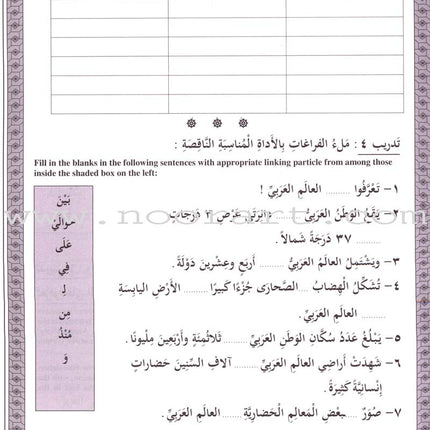 تَدريب ٤ : مَلءُ الفَراغاتِ بِالأداةِ الْمُناسِبَةِ النَّاقِصَةِ :
Fill in the blanks in the following sentences with appropriate linking particle from among those
inside the shaded box on the left:
١- تَعَرَّفُوا ......... العالَمِ العَرَبِيِّ !
٢- يَقَعُ الوَطَنُ العَرَبِيُّ ......... دائِرَتَيْ عَرْضِ ٢ دَرَجات
......... ٣٧ دَرَجَةً شَمالاً .
٣- وَيَشْتَمِلُ العالَمُ العَرَبِيُّ ......... أربَعٍ وعِشْرينَ دَوْلَةً .
٤- تُشَكِّلُ الْهِضابُ ......... الصَّحارَى جُزْءًا كَبيرًا ......... الأرْضِ اليابِسَةِ
......... العالَمِ العَرَبِيِّ .
٥- يَبْلُغُ عَدَدُ سُكَّانِ الوَطَنِ العَرَبِيِّ ......... ثَلاثَمِئَةٍ وأرْبَعينَ مِلْيونًا .
٦- شَهِدَتْ أراضِي العالَمِ العَرَبِيِّ ......... آلافِ السِّنينَ حَضاراتٍ
إنْسانِيَّةً كَثيرَةً .
٧- صُوَرٌ ......... بَعْضِ الْمَعالِمِ الْحَضارِيَّةِ ......... العالَمِ العَرَبِيِّ .
بَيْنَ
حوالَيْ
عَلَى
فِي
لِـ
مِن
مُنْذُ
وَ
www.noorart.com